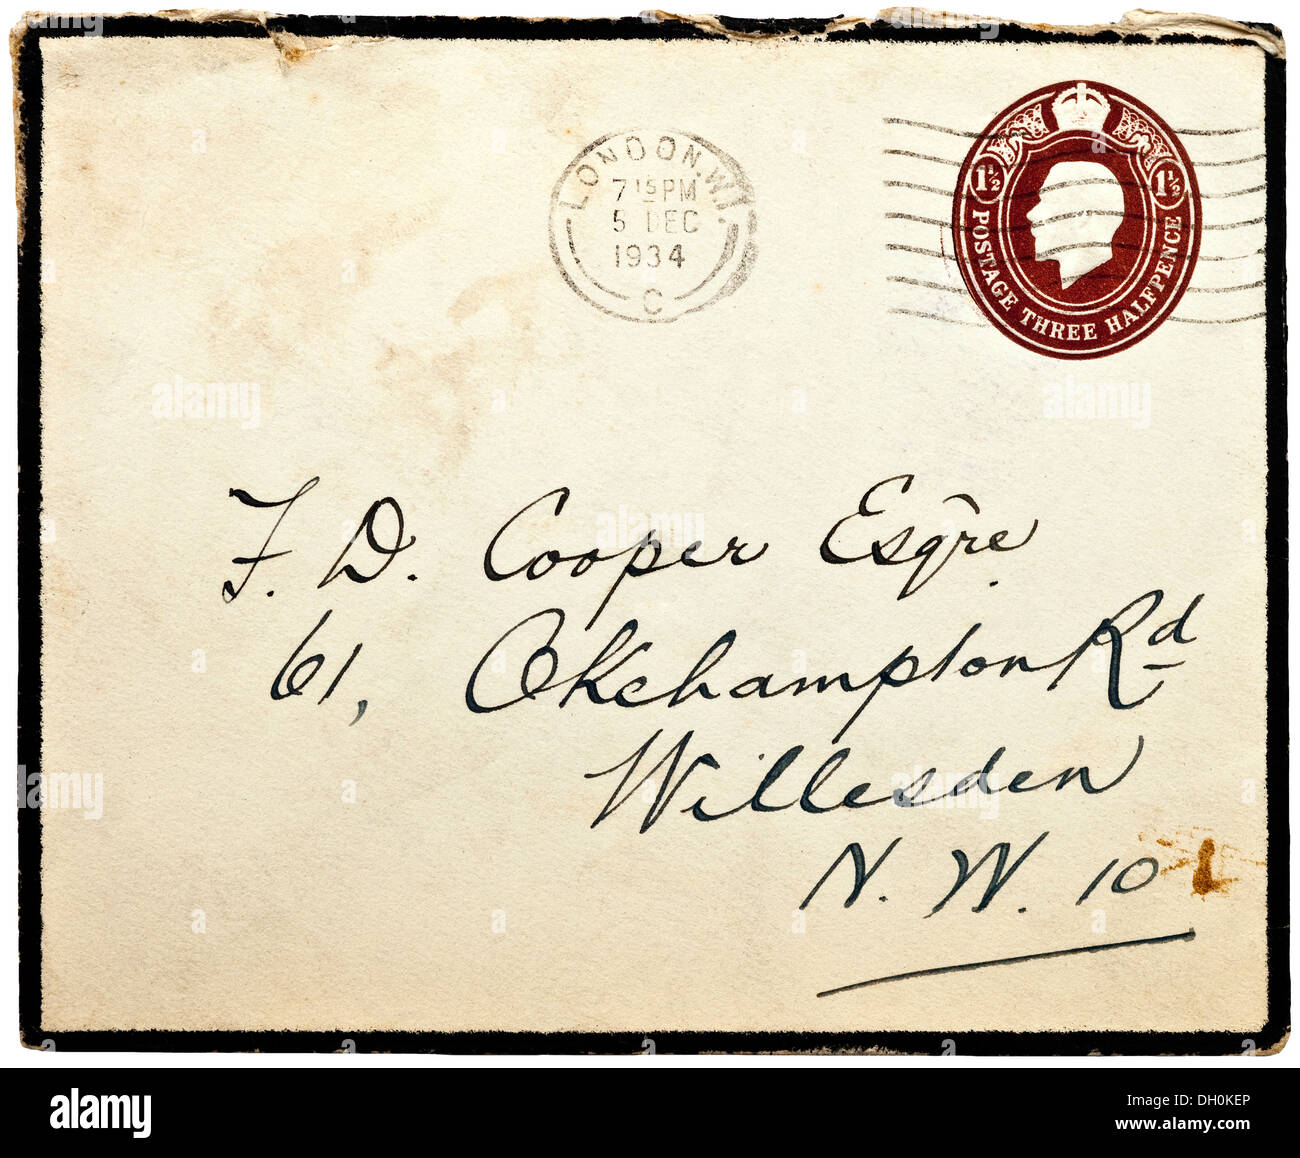 LONDON.W.1.
7 15 PM
5 DEC
1934
C
1½ 1½
POSTAGE THREE HALFPENCE
F. D. Cooper Esqre
61, Okehampton Rd
Willesden
N. W. 10
alamy
Image ID: DH0KEP
www.alamy.com